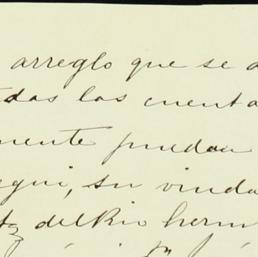 arreglo que se
las cuenta
mente puedan
su viuda
del Rio herm